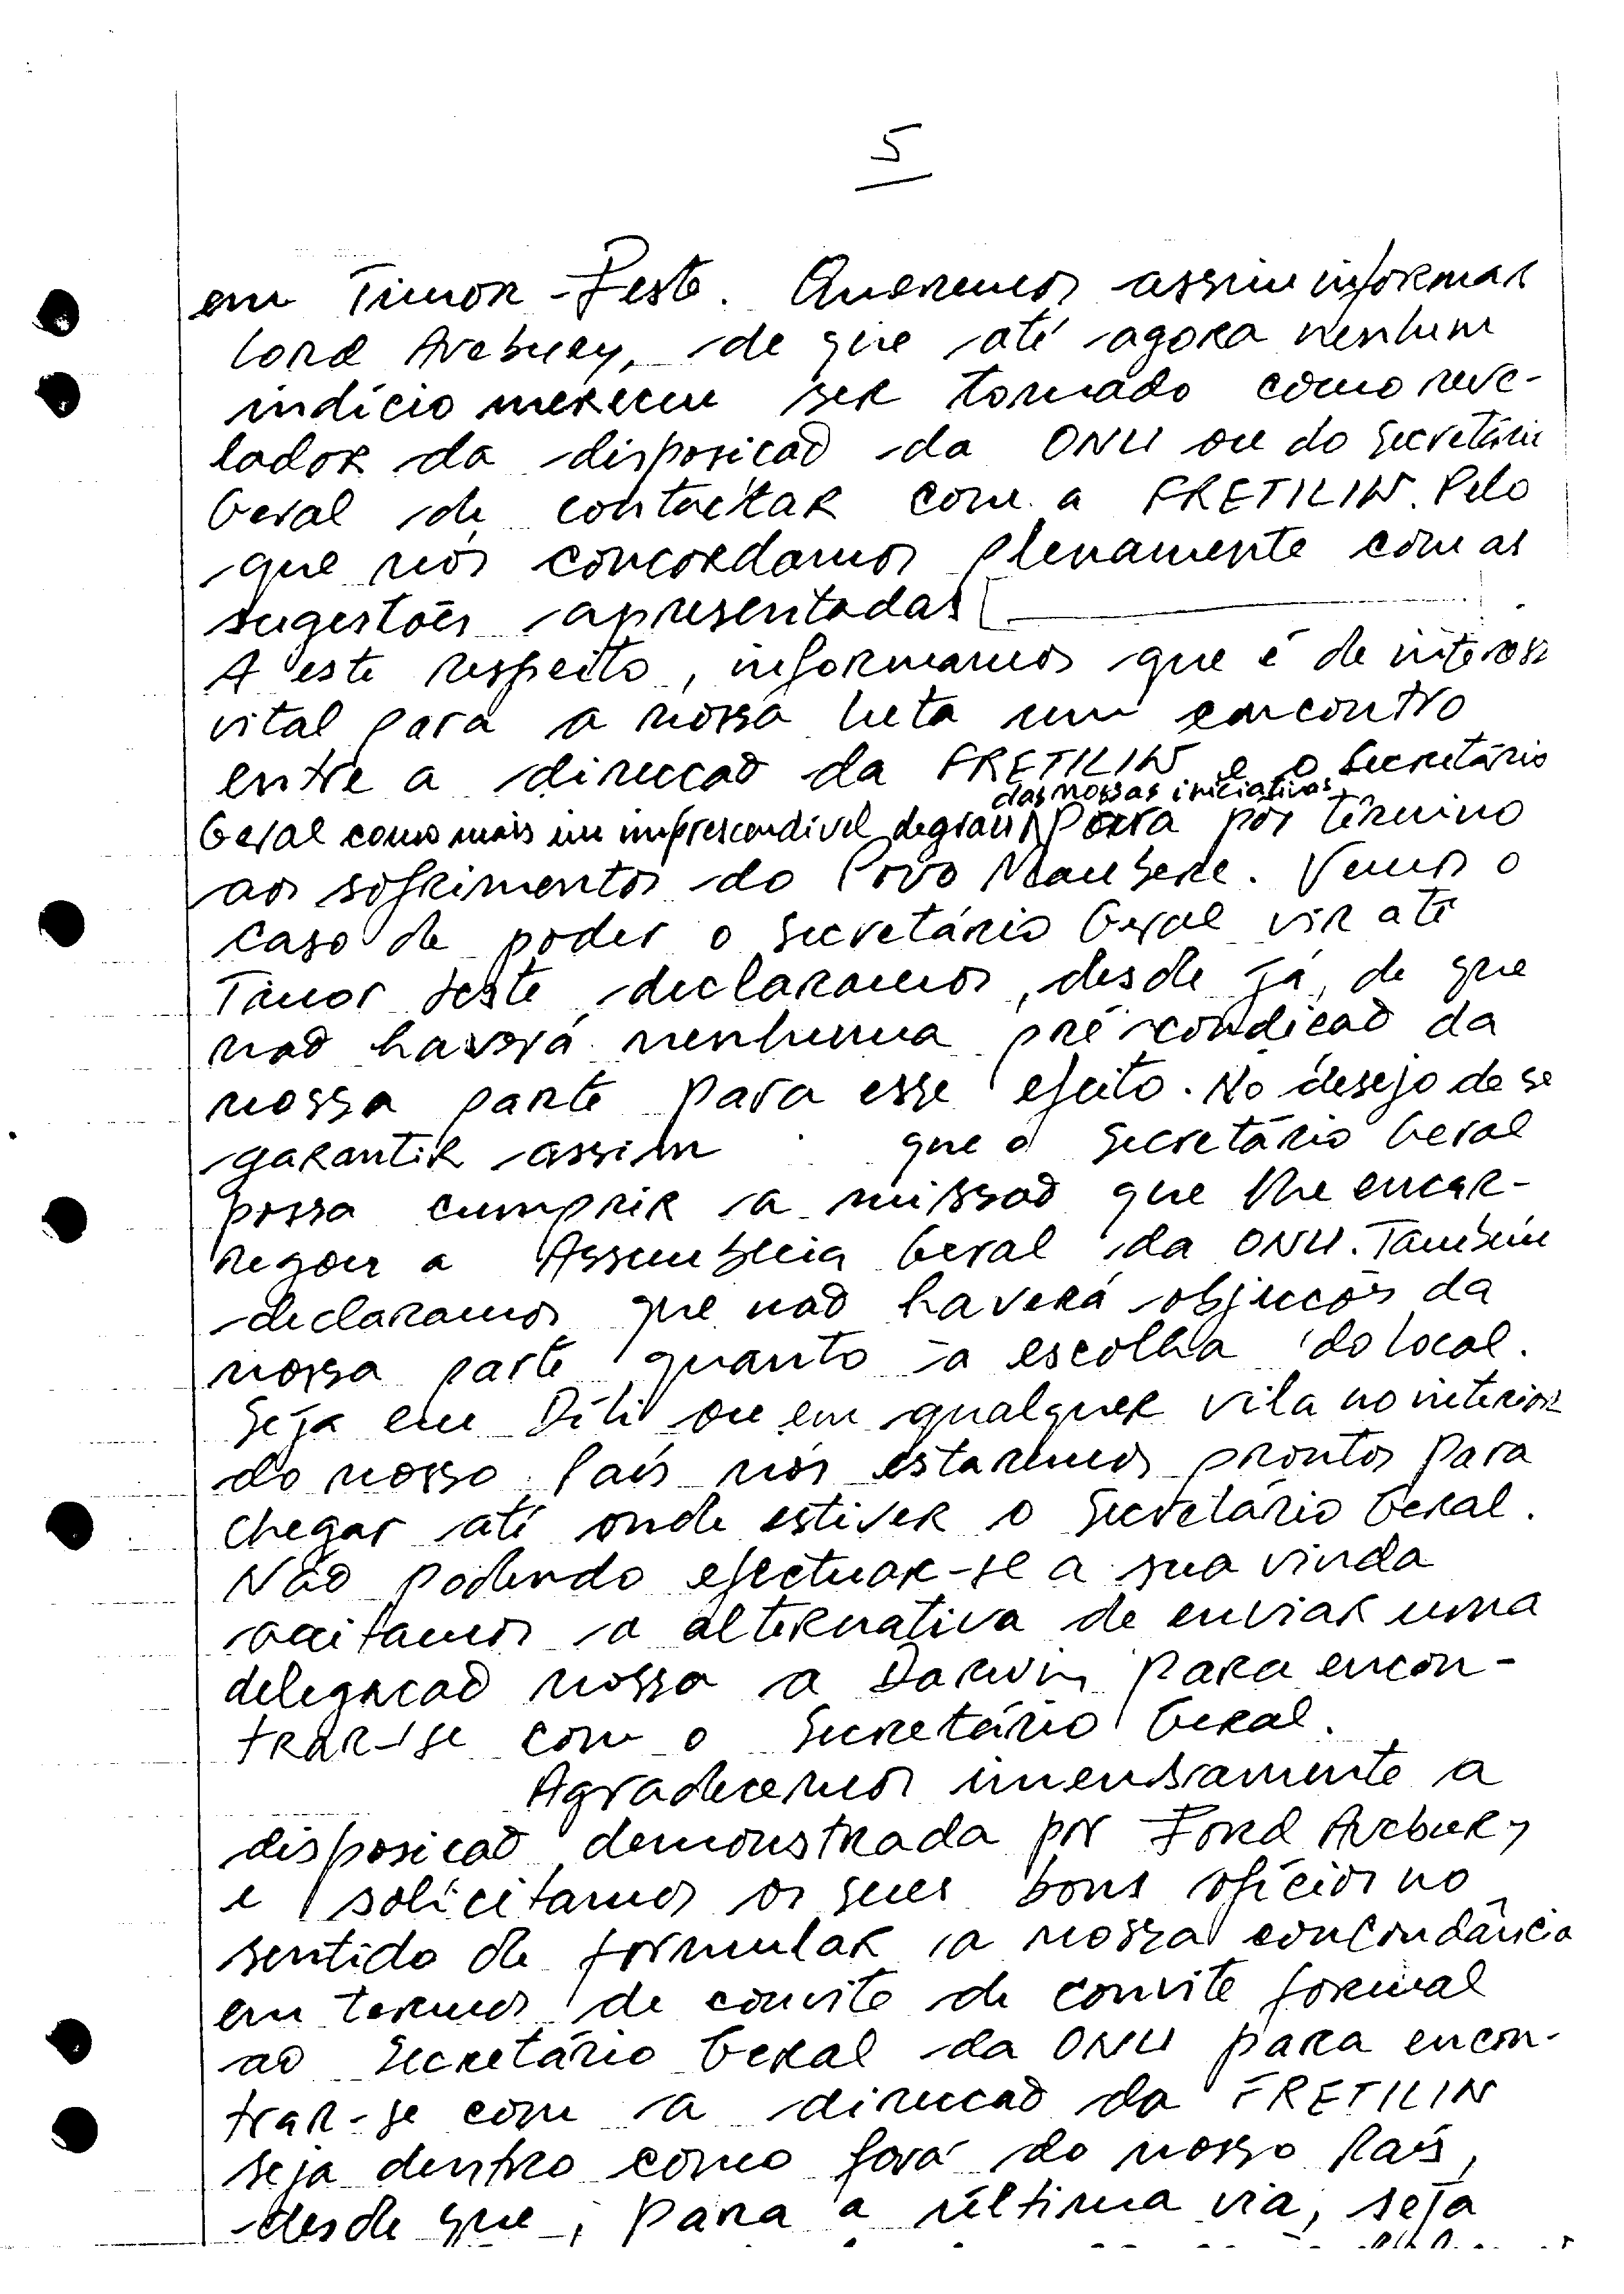 5
em Timor-Leste. Queremos assim informar
Lord Avebury, de que até agora nenhum
indício mereceu ser tomado como reve-
lador da disposição da ONU ou do Secretário
Geral de contactar com a FRETILIN. Pelo
que nós concordamos plenamente com as
sugestões apresentadas
A este respeito, informamos que é de interesse
vital para a nossa luta um encontro
entre a direcção da FRETILIN e o Secretário
das nossas iniciativas
Geral como mais um imprescendível degrau para pôr término
aos sofrimentos do Povo Maubere. Vemos o
caso de poder o Secretário Geral vir até
Timor Leste, declaramos, desde já, de que
não haverá nenhuma pré-condição da
nossa parte para esse efeito. No desejo de se
garantir assim que o Secretário Geral
possa cumprir a missão que lhe encar-
regou a Assembleia Geral da ONU. Também
declaramos que não haverá objecções da
nossa parte quanto à escolha do local.
Seja em Díli ou em qualquer vila no interior
do nosso País nós estaremos prontos para
chegar até onde estiver o Secretário Geral.
Não podendo efectuar-se a sua vinda
aceitamos a alternativa de enviar uma
delegação nossa a Darwin para encon-
trar-se com o Secretário Geral.
Agradecemos imensamente a
disposição demonstrada por Lord Avebury
e solicitamos os seus bons ofícios no
sentido de formular a nossa concordância
em termos de convite de convite formal
ao Secretário Geral da ONU para encon-
trar-se com a direcção da FRETILIN
seja dentro como fora do nosso País,
desde que, para a última via, seja